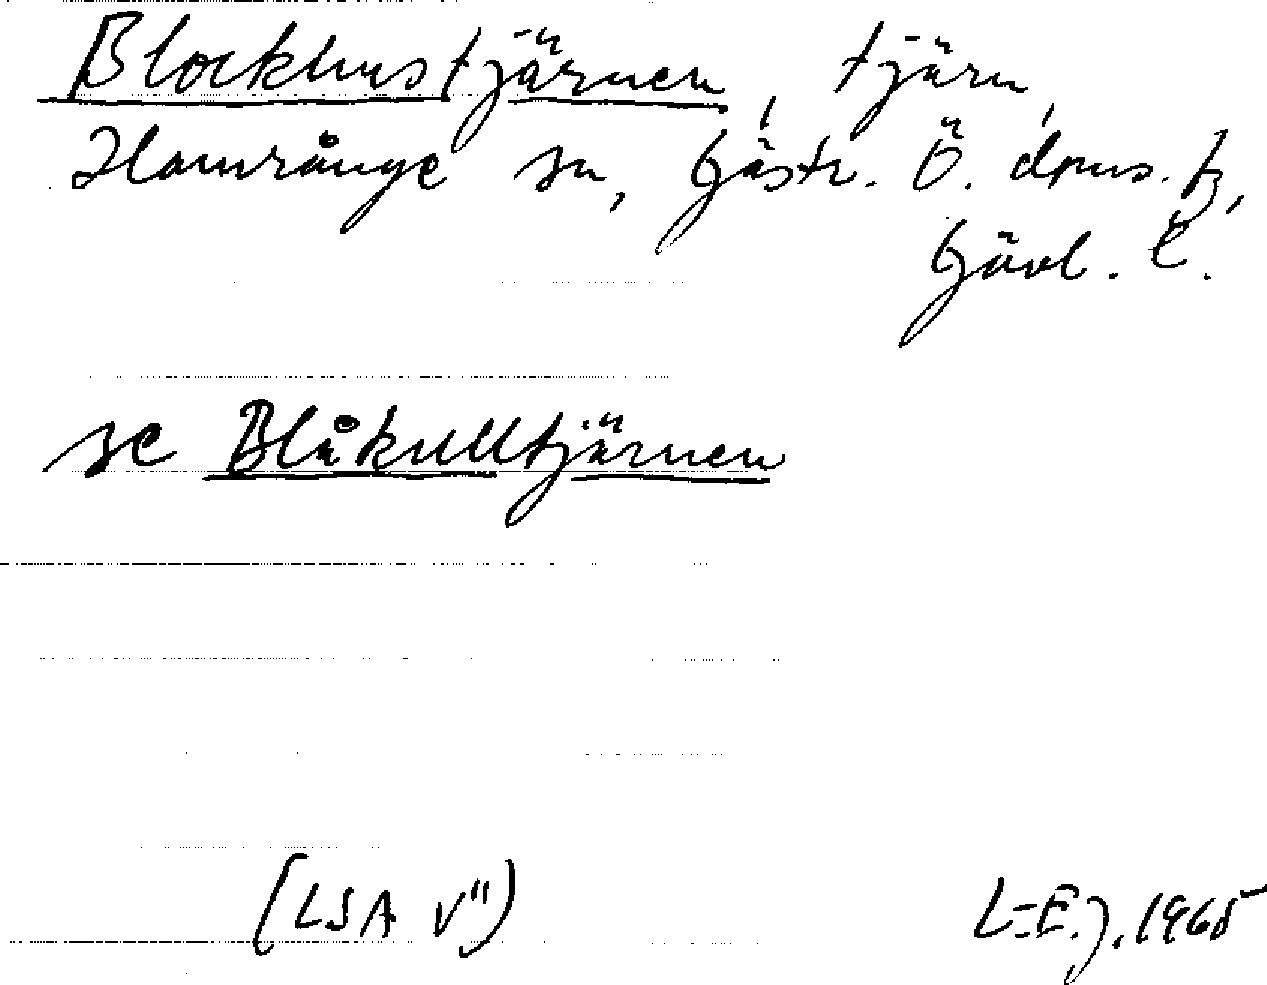 Blockhustjärnen, tjärn,
Hamrånge sn, Gästr. Ö. dpns. tg,
Gävl. l.
se Blåkulltjärnen
(LSA V")
L-E.J. 1965